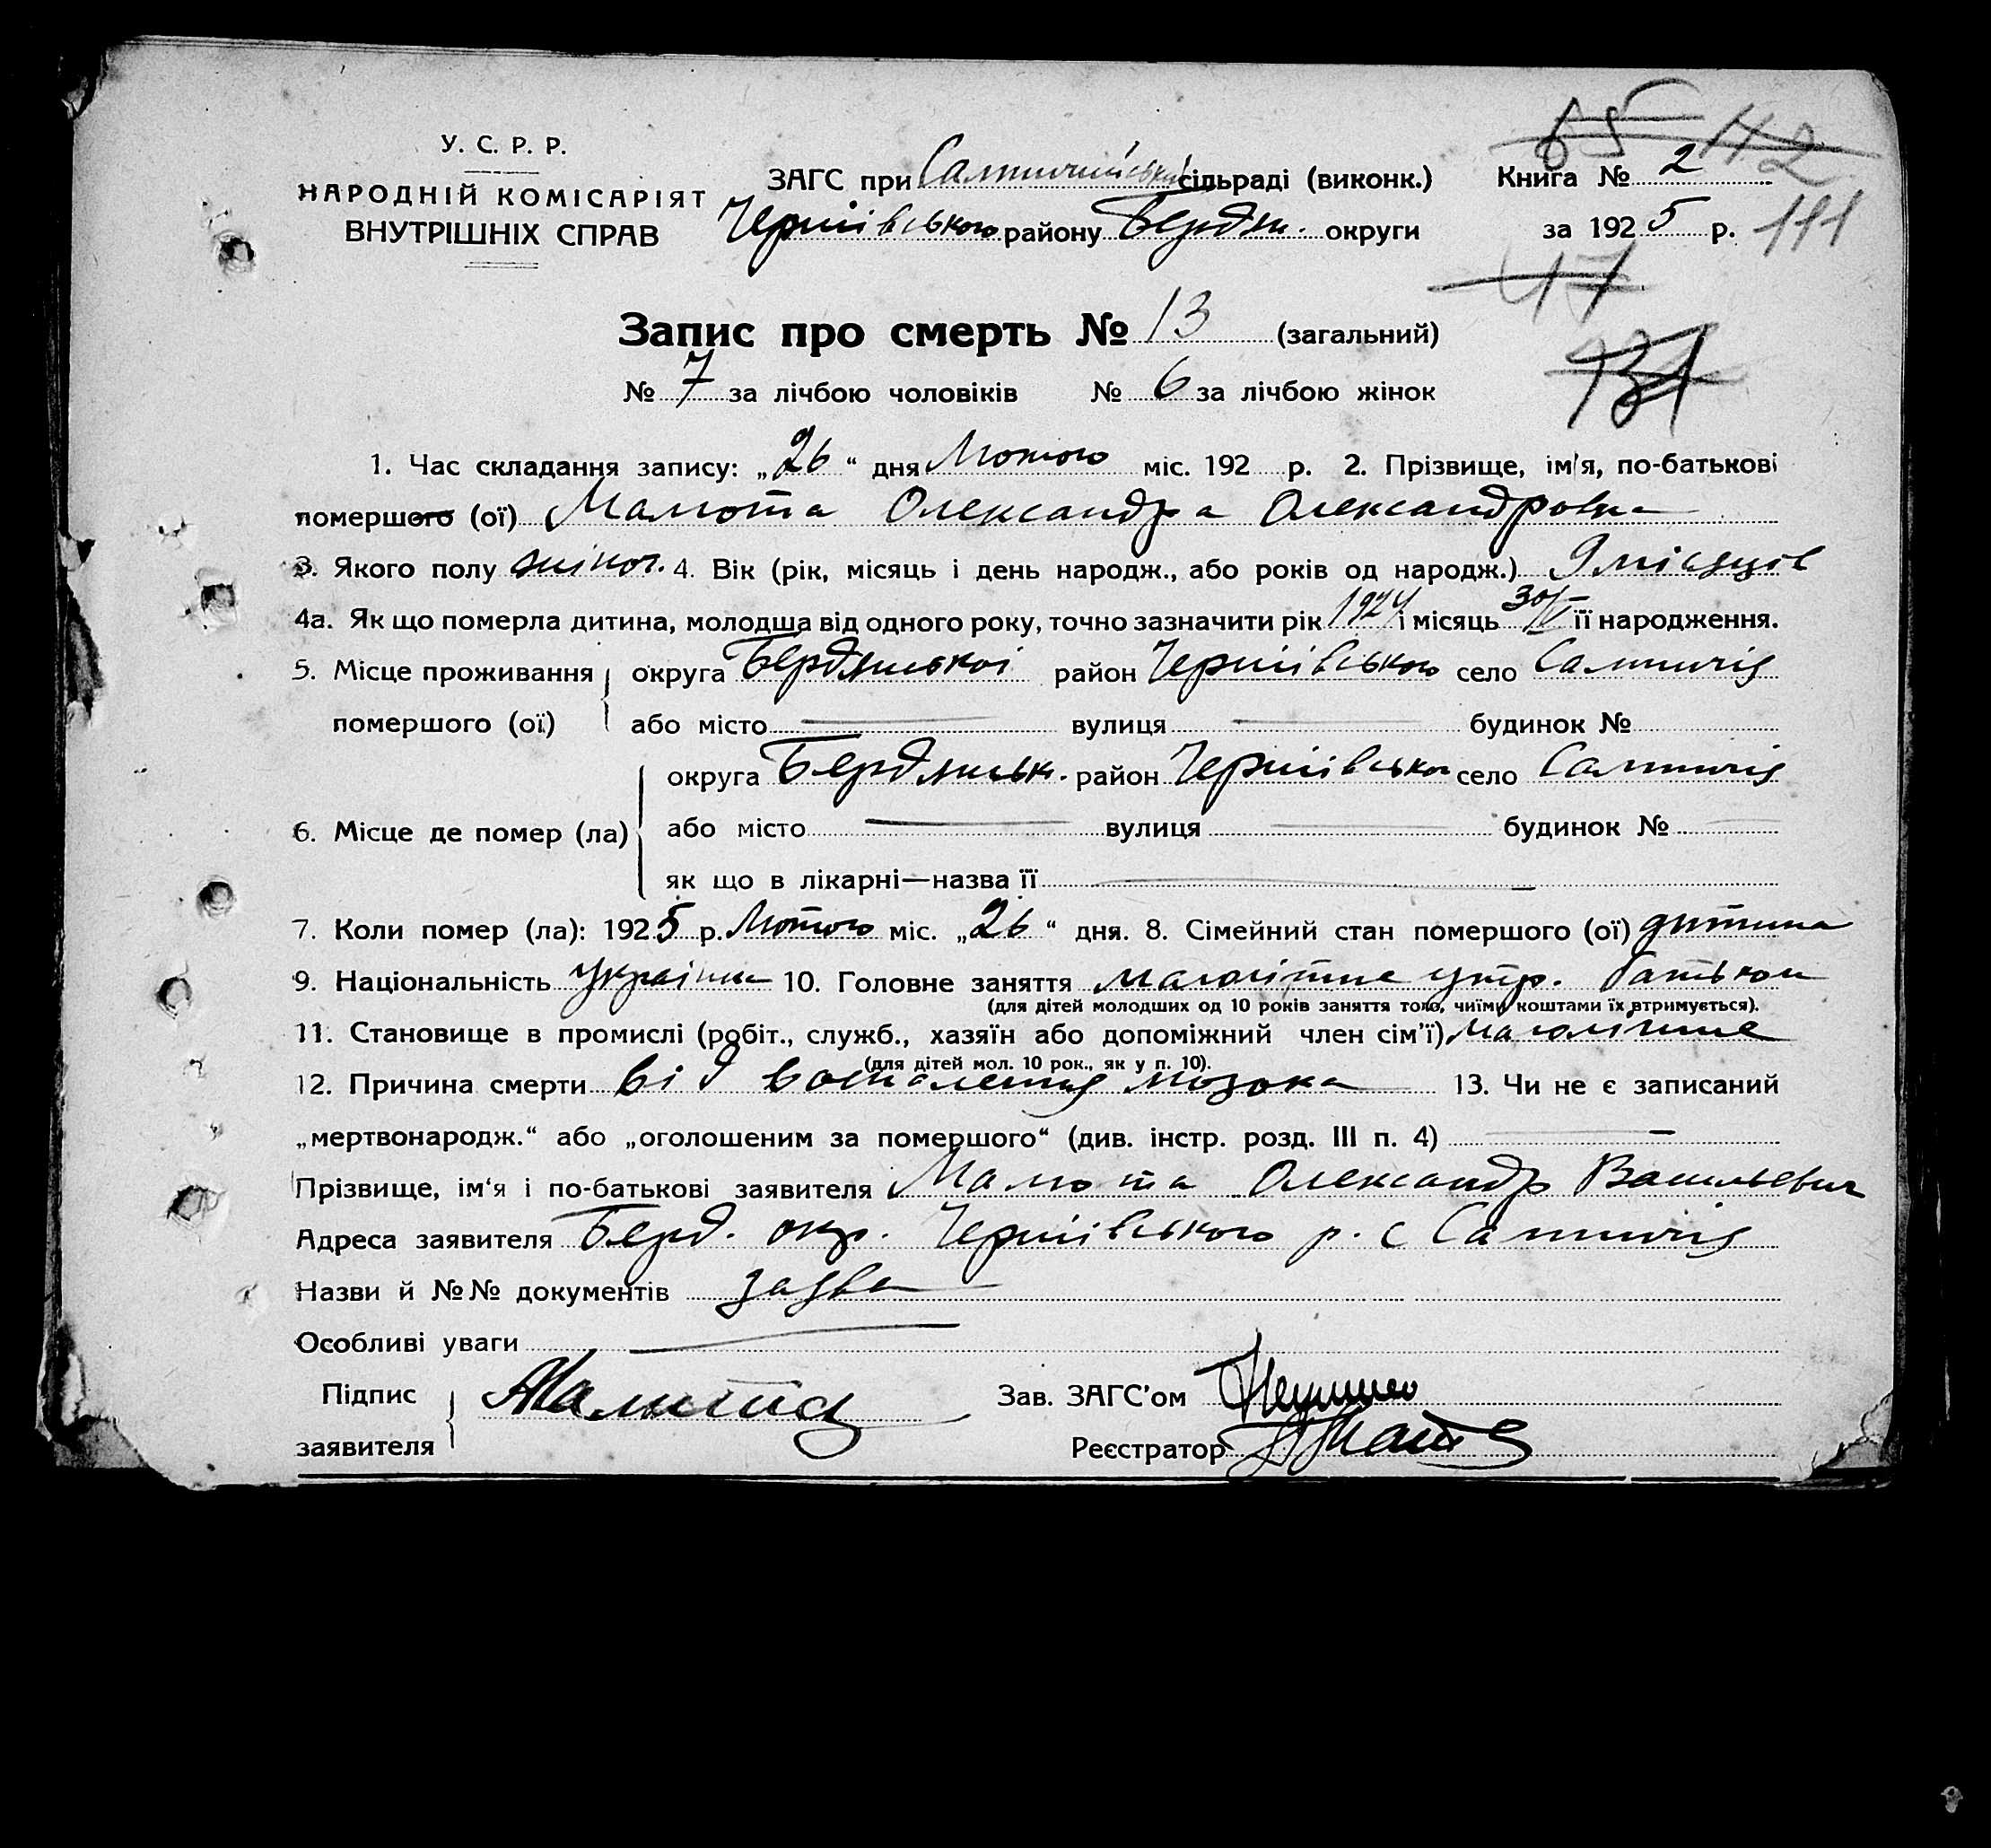 65 142
У. С. Р. Р.
НАРОДНІЙ КОМІСАРІЯТ
ВНУТРІШНІХ СПРАВ
ЗАГС при Салтичийській сільраді (виконк.)
Чернігівського району Бердян. округи
Книга № 2
за 1925 р. 111
47
Запис про смерть № 13 (загальний)
131
№ 7 за лічбою чоловіків № 6 за лічбою жінок
1. Час складання запису: „26“ дня Лютого міс. 192 р. 2. Прізвище, ім'я, по-батькові
помершого (ої) Малюта Олександра Олександровна
3. Якого полу жіноч. 4. Вік (рік, місяць і день народж., або років од народж.) 9 місяців
4а. Як що померла дитина, молодша від одного року, точно зазначити рік 1924 і місяць 30/IV її народження.
5. Місце проживання округа Бердянської район Чернігівського село Салтичія
помершого (ої) або місто вулиця будинок №
округа Бердянськ. район Чернігівськ село Салтичія
6. Місце де помер (ла) або місто вулиця будинок №
як що в лікарні—назва її
7. Коли помер (ла): 1925 р. Лютого міс. „26“ дня. 8. Сімейний стан помершого (ої) дитина
9. Національність Українка 10. Головне заняття малолітне утр. батьком
(для дітей молодших од 10 років заняття того, чиїми коштами їх втримується).
11. Становище в промислі (робіт., служб., хазяїн або допоміжний член сім'ї) малолітне
(для дітей мол. 10 рок., як у п. 10).
12. Причина смерти від воспаления мозока 13. Чи не є записаний
„мертвонародж.“ або „оголошеним за помершого“ (див. інстр. розд. III п. 4)
Прізвище, ім'я і по-батькові заявителя Малюта Олександр Васильевич
Адреса заявителя Берд. окр. Чернігівського р. с Салтичія
Назви й №№ документів заява
Особливі уваги
Підпис заявителя Малюта
Зав. ЗАГС'ом
Реєстратор